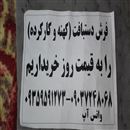 فرش دستبافت (کهنه و کارکرده)
را به قیمت روز خریداریم
۰۹۳۵۹۵۹۱۲۷۳-۰۹۰۳۷۲۴۸۰۶۸
واتس آپ